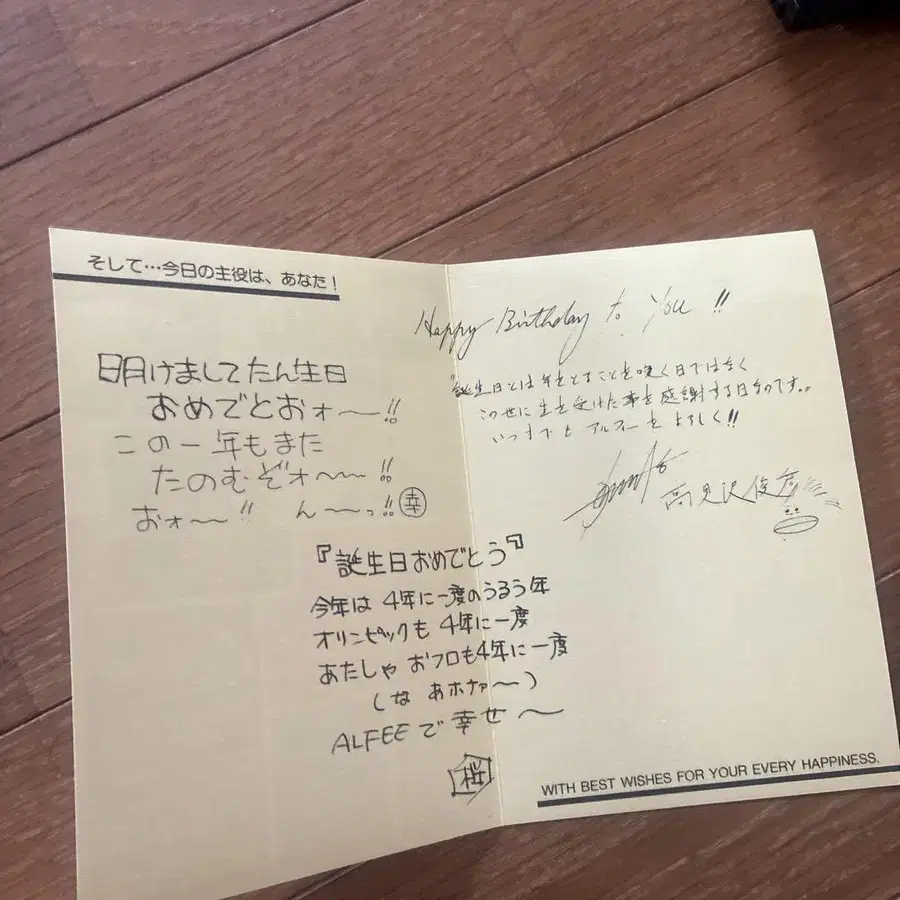 そして…今日の主役は、あなた!
明けましてたん生日
おめでとおォ〜!!
この一年もまた
たのむぞォ〜〜!!
おォ〜!! ん〜っ!! 幸
Happy Birthday to You!!
"誕生日とは年をとることを嘆く日ではなく
この世に生を受けた事を感謝する日なのです。"
いつまでもアルフィーをよろしく!!
高見沢俊彦
『誕生日おめでとう』
今年は4年に一度のうるう年
オリンピックも4年に一度
あたしゃおフロも4年に一度
(なあホナァ〜)
ALFEEで幸せ〜
桜
WITH BEST WISHES FOR YOUR EVERY HAPPINESS.